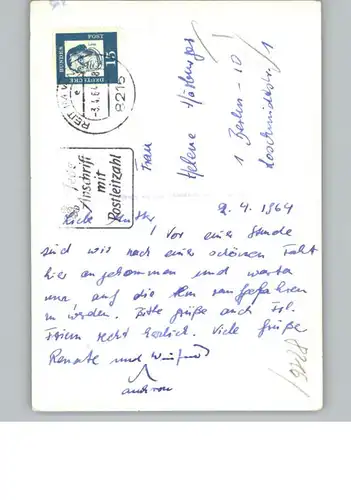 DEUTSCHE
BUNDESPOST
15
8216 REIT
- 3.4.64 - 8
e
Jede
Anschrift
mit
Postleitzahl
Frau
Helene
1 Berlin - 10
1
2. 4. 1964
Liebe Mutter!
Vor einer Stunde
sind wir nach einer schönen Fahrt
hier angekommen und warten
nur auf die
zu werden. Bitte grüße auch Frl.
recht herzlich. Viele Grüße
Renate und Winfried